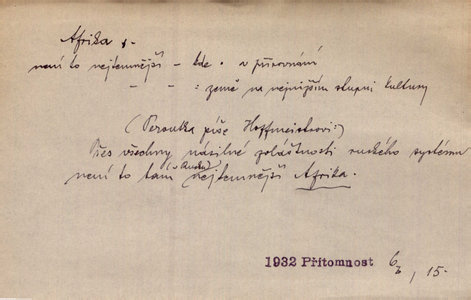 Afrika f.
není to nejtemnější – zde • v přirovnání
– – : země na nejnižším stupni kultury
(Peroutka píše Hoffmeistrovi:)
Přes všechny násilné zvláštnosti ruského systému
není to tam (v Rusku) nejtemnější Afrika.
1932 Přítomnost 6, 15.